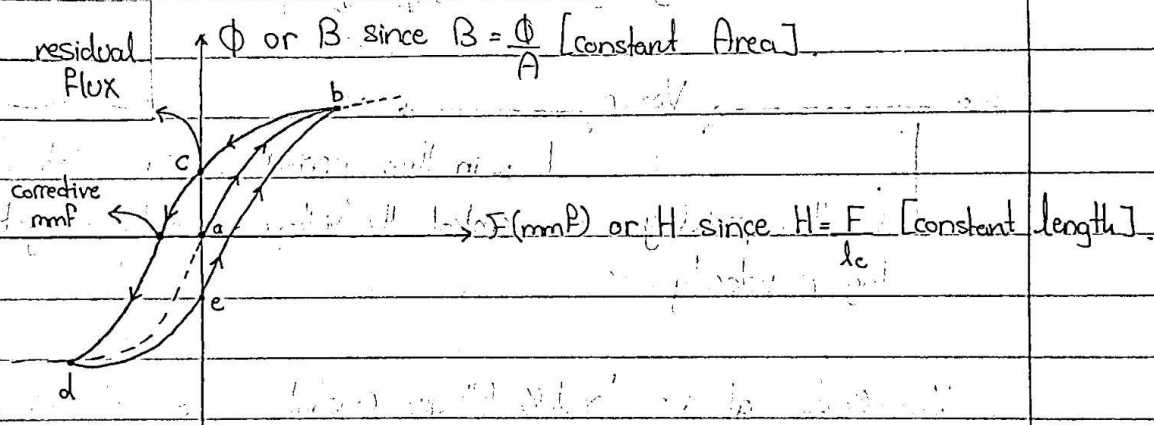 residual flux
Φ or B since B = Φ/A [constant Area].
b
c
corrective mmf
a
F(mmf) or H since H = F/lc [constant length].
e
d